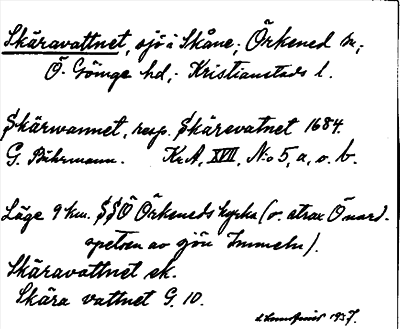 Skäravattnet, sjö i Skåne; Örkened sn;
Ö. Göinge hd; Kristianstads l.
Skärwannet, resp. Skärevatnet 1684.
G. Buhrmann. KrA, XVII, No 5, a, o. b.
Läge 9 km. SSÖ Örkeneds kyrka (o. strax Ö nord-
spetsen av sjön Immeln).
Skäravattnet ek.
Skära vattnet G. 10.
1937.